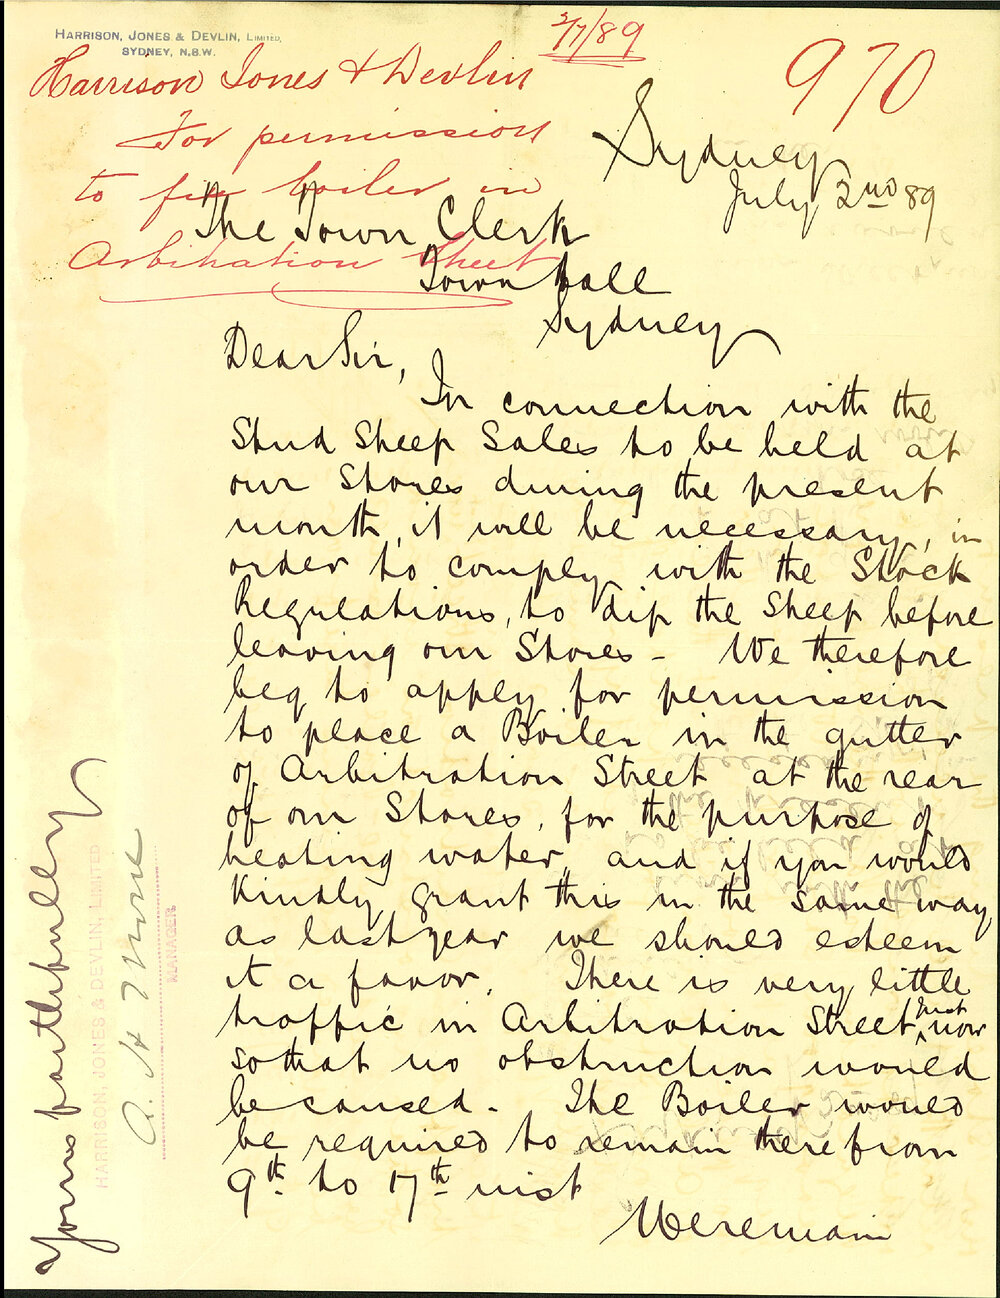 HARRISON, JONES & DEVLIN, LIMITED,
SYDNEY, N.S.W.
2/7/89
970
Harrison Jones & Devlin
For permission
to fix boiler in
Arbitration Street
Sydney
July 2nd 89
The Town Clerk
Town Hall
Sydney
Dear Sir,
In connection with the
Stud Sheep Sales to be held at
our Stores during the present
month, it will be necessary, in
order to comply with the Stock
Regulations, to dip the Sheep before
leaving our Stores - We therefore
beg to apply for permission
to place a Boiler in the gutter
of Arbitration Street at the rear
of our Stores, for the purpose of
heating water, and if you would
kindly grant this in the same way
as last year we should esteem
it a favor. There is very little
traffic in Arbitration Street just now
so that no obstruction would
be caused. The Boiler would
be required to remain there from
9th to 17th inst
We remain
Yours faithfully
HARRISON JONES & DEVLIN, LIMITED
A. H.
MANAGER